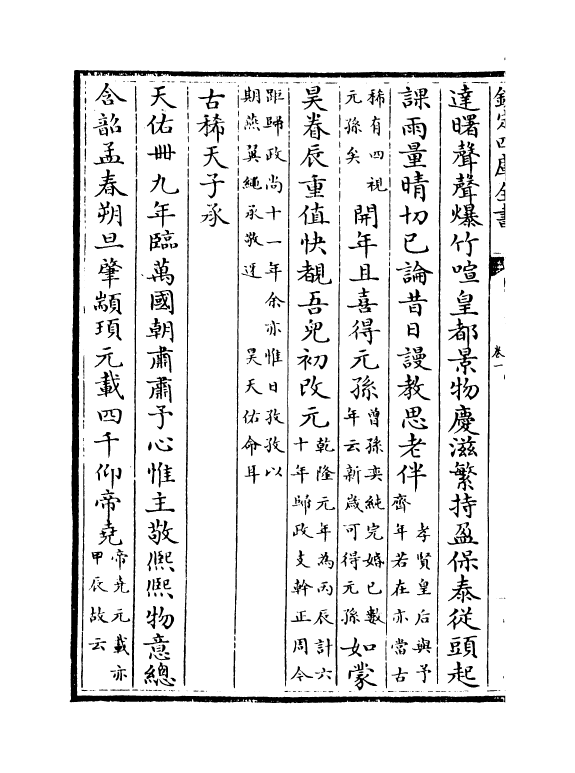 欽定四庫全書 卷一
達曙聲聲爆竹喧皇都景物慶滋繁持盈保泰從頭起
課雨量晴切已論昔日謾教思老伴
孝賢皇后與予
齊年若在亦當古
稀有四視
元孫矣
開年且喜得元孫
曾孫奕純完婚已數
年云新歳可得元孫
如蒙
昊眷辰重值快覩吾兒初改元
乾隆元年為丙辰計六
十年歸政支幹正周今
距歸政尚十一年余亦惟日孜孜以
期燕翼繩承敬迓 昊天佑命耳
古稀天子承
天佑卌九年臨萬國朝肅肅予心惟主敬熈熈物意總
含韶孟春朔旦肇顓頊元載四千仰帝堯
帝堯元載亦
甲辰故云